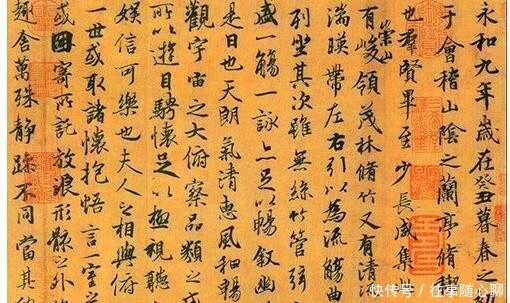 永和九年歲在癸丑暮春之
于會稽山陰之蘭亭脩禊
也羣賢畢至少長咸集
有崇山峻領茂林脩竹又有清
湍暎帶左右引以為流觴曲
列坐其次雖無絲竹管弦
盛一觴一詠亦足以暢叙幽
是日也天朗氣清惠風和暢
觀宇宙之大俯察品類之
所以遊目騁懷足以極視聽
娛信可樂也夫人之相與俯
一世或取諸懷抱悟言一室之
或因寄所託放浪形骸之外
趣舍萬殊静躁不同當其
快传号 / 往事随心聊